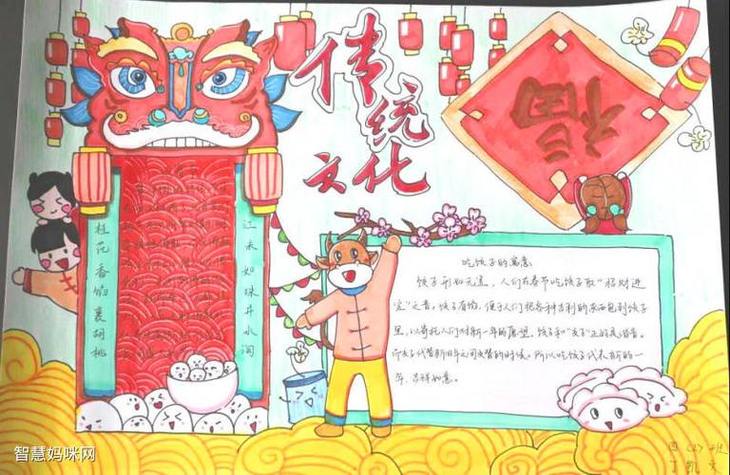 传统
文化
福
桂花香馅裹胡桃
江米如珠井水淘
吃饺子的寓意
饺子形如元宝，人们在春节吃饺子取“招财进
宝”之音。饺子有馅，便于人们把各种吉利的东西包到饺子
里，以寄托人们对新一年的愿望。饺子和“交子”正好是谐音。
而交子代替新旧年之间交替的时候。所以吃饺子代表新的一
年，吉祥如意。
班
智慧妈咪网